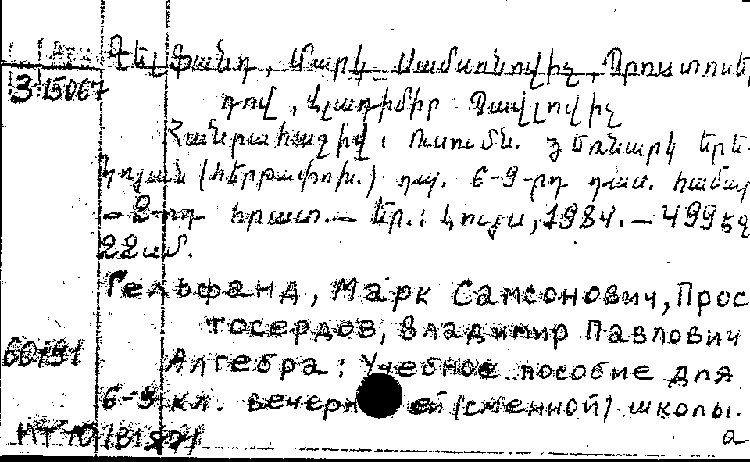 Գելֆանդ, Մարկ Սամսոնովիչ, Պրոստոսեր
З 15067
դով, Վլադիմիր Պավլովիչ
Հանրահաշիվ: Ուսումն. ձեռնարկ երե-
կոյան (հերթափոխ.) դպ. 6-9-րդ դաս. համար
- 2-րդ հրատ. – Եր.: Լույս, 1984. – 499 էջ
22 սմ.
Гельфанд, Марк Самсонович, Прос
тосердов, Владимир Павлович
60191
Алгебра: Учебное пособие для
6-9 кл. вечерн ей (сменной) школы.
а